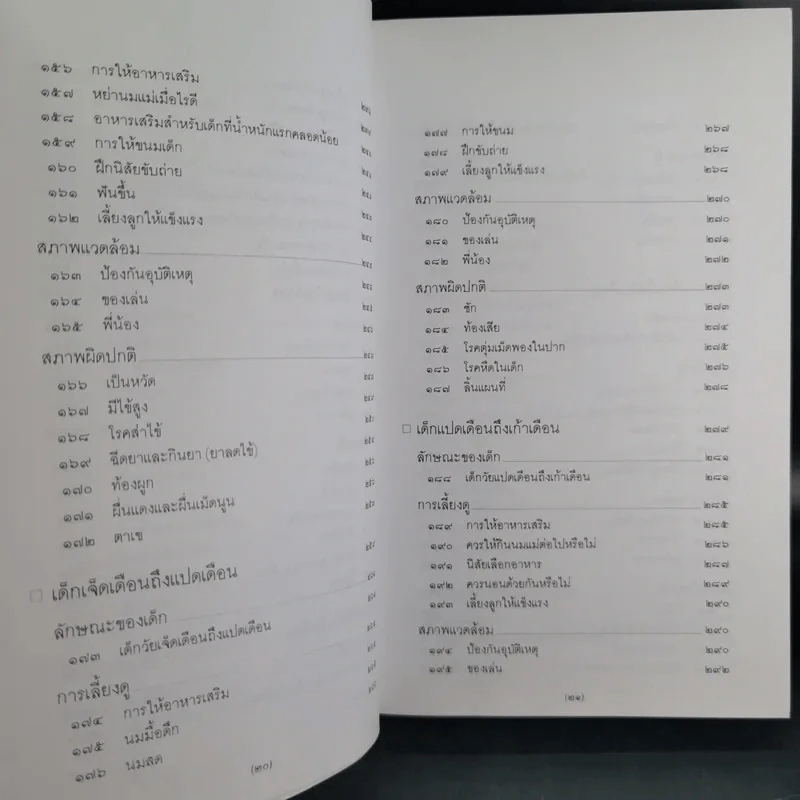 ๑๕๖ การให้อาหารเสริม
๑๕๗ หย่านมแม่เมื่อไรดี
๑๕๘ อาหารเสริมสำหรับเด็กที่น้ำหนักแรกคลอดน้อย
๑๕๙ การให้ขนมเด็ก
๑๖๐ ฝึกนิสัยขับถ่าย
๑๖๑ ฟันขึ้น
๑๖๒ เลี้ยงลูกให้แข็งแรง
สภาพแวดล้อม
๑๖๓ ป้องกันอุบัติเหตุ
๑๖๔ ของเล่น
๑๖๕ พี่น้อง
สภาพผิดปกติ
๑๖๖ เป็นหวัด
๑๖๗ มีไข้สูง
๑๖๘ โรคส่าไข้
๑๖๙ ฉีดยาและกินยา (ยาลดไข้)
๑๗๐ ท้องผูก
๑๗๑ ผื่นแดงและผื่นเม็ดนูน
๑๗๒ ตาเข
□ เด็กเจ็ดเดือนถึงแปดเดือน
ลักษณะของเด็ก
๑๗๓ เด็กวัยเจ็ดเดือนถึงแปดเดือน
การเลี้ยงดู
๑๗๔ การให้อาหารเสริม
๑๗๕ นมมื้อดึก
๑๗๖ นมสด
(๒๐)
๑๗๗ การให้ขนม ๒๖๗
๑๗๘ ฝึกขับถ่าย ๒๖๘
๑๗๙ เลี้ยงลูกให้แข็งแรง ๒๖๘
สภาพแวดล้อม ๒๗๐
๑๘๐ ป้องกันอุบัติเหตุ ๒๗๐
๑๘๑ ของเล่น ๒๗๑
๑๘๒ พี่น้อง ๒๗๒
สภาพผิดปกติ ๒๗๓
๑๘๓ ชัก ๒๗๓
๑๘๔ ท้องเสีย ๒๗๔
๑๘๕ โรคตุ่มเม็ดพองในปาก ๒๗๕
๑๘๖ โรคหืดในเด็ก ๒๗๖
๑๘๗ ลิ้นแผนที่ ๒๗๘
□ เด็กแปดเดือนถึงเก้าเดือน ๒๗๙
ลักษณะของเด็ก ๒๘๑
๑๘๘ เด็กวัยแปดเดือนถึงเก้าเดือน ๒๘๑
การเลี้ยงดู ๒๘๕
๑๘๙ การให้อาหารเสริม ๒๘๕
๑๙๐ ควรให้กินนมแม่ต่อไปหรือไม่ ๒๘๖
๑๙๑ นิสัยเลือกอาหาร ๒๘๗
๑๙๒ ควรนอนด้วยกันหรือไม่ ๒๘๙
๑๙๓ เลี้ยงลูกให้แข็งแรง ๒๙๐
สภาพแวดล้อม ๒๙๐
๑๙๔ ป้องกันอุบัติเหตุ ๒๙๐
๑๙๕ ของเล่น ๒๙๒
(๒๑)